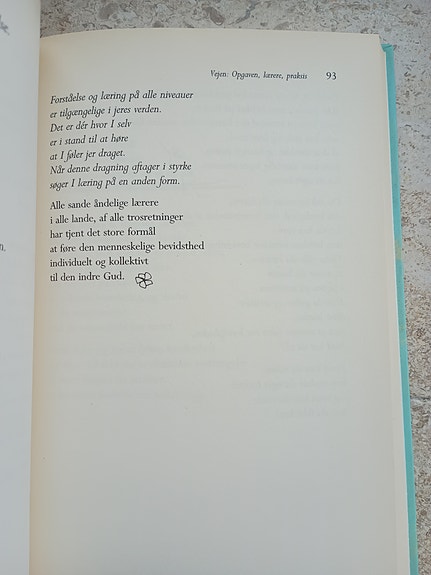 Vejen: Opgaven, lærere, praksis 93
Forståelse og læring på alle niveauer
er tilgængelige i jeres verden.
Det er dér hvor I selv
er i stand til at høre
at I føler jer draget.
Når denne dragning aftager i styrke
søger I læring på en anden form.
Alle sande åndelige lærere
i alle lande, af alle trosretninger
har tjent det store formål
at føre den menneskelige bevidsthed
individuelt og kollektivt
til den indre Gud.